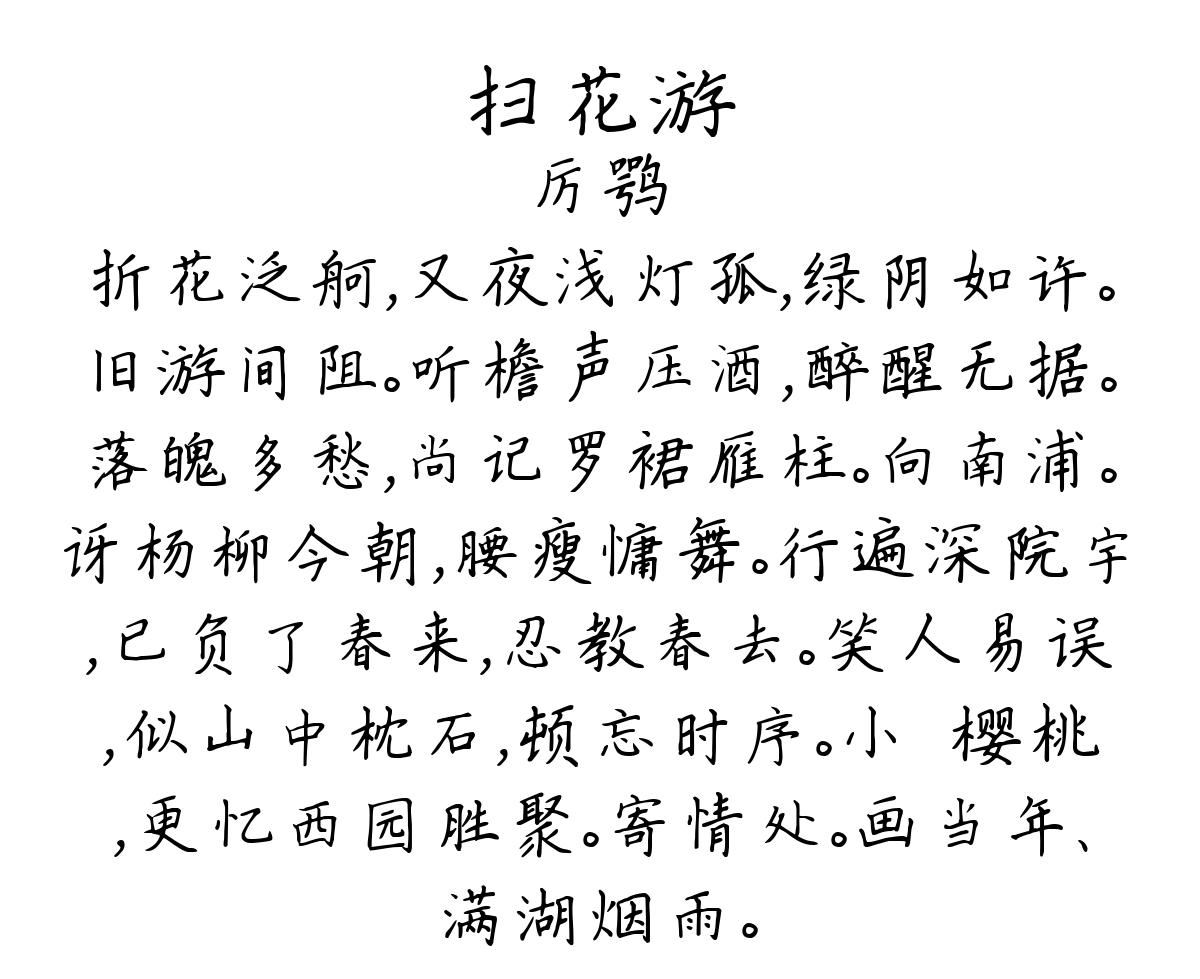 扫花游
厉鹗
折花泛舸,又夜浅灯孤,绿阴如许。
旧游间阻。听檐声压酒,醉醒无据。
落魄多愁,尚记罗裙雁柱。向南浦。
讶杨柳今朝,腰瘦慵舞。行遍深院宇
,已负了春来,忍教春去。笑人易误
,似山中枕石,顿忘时序。小 樱桃
,更忆西园胜聚。寄情处。画当年、
满湖烟雨。